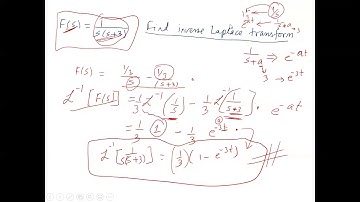 F(s) = 1/(s(s+3)) Find inverse Laplace transform
1/(s+a) ⇒ e^{-at}
3 → e^{-3t}
F(s) = (1/3)/s - (1/3)/(s+3)
L^{-1}[F(s)] = 1/3 L^{-1}(1/s) - 1/3 L^{-1}[1/(s+3)] . e^{-at}
= 1/3 (1) - 1/3 e^{-3t}
L^{-1}[1/(s(s+3))] = (1/3)(1 - e^{-3t})